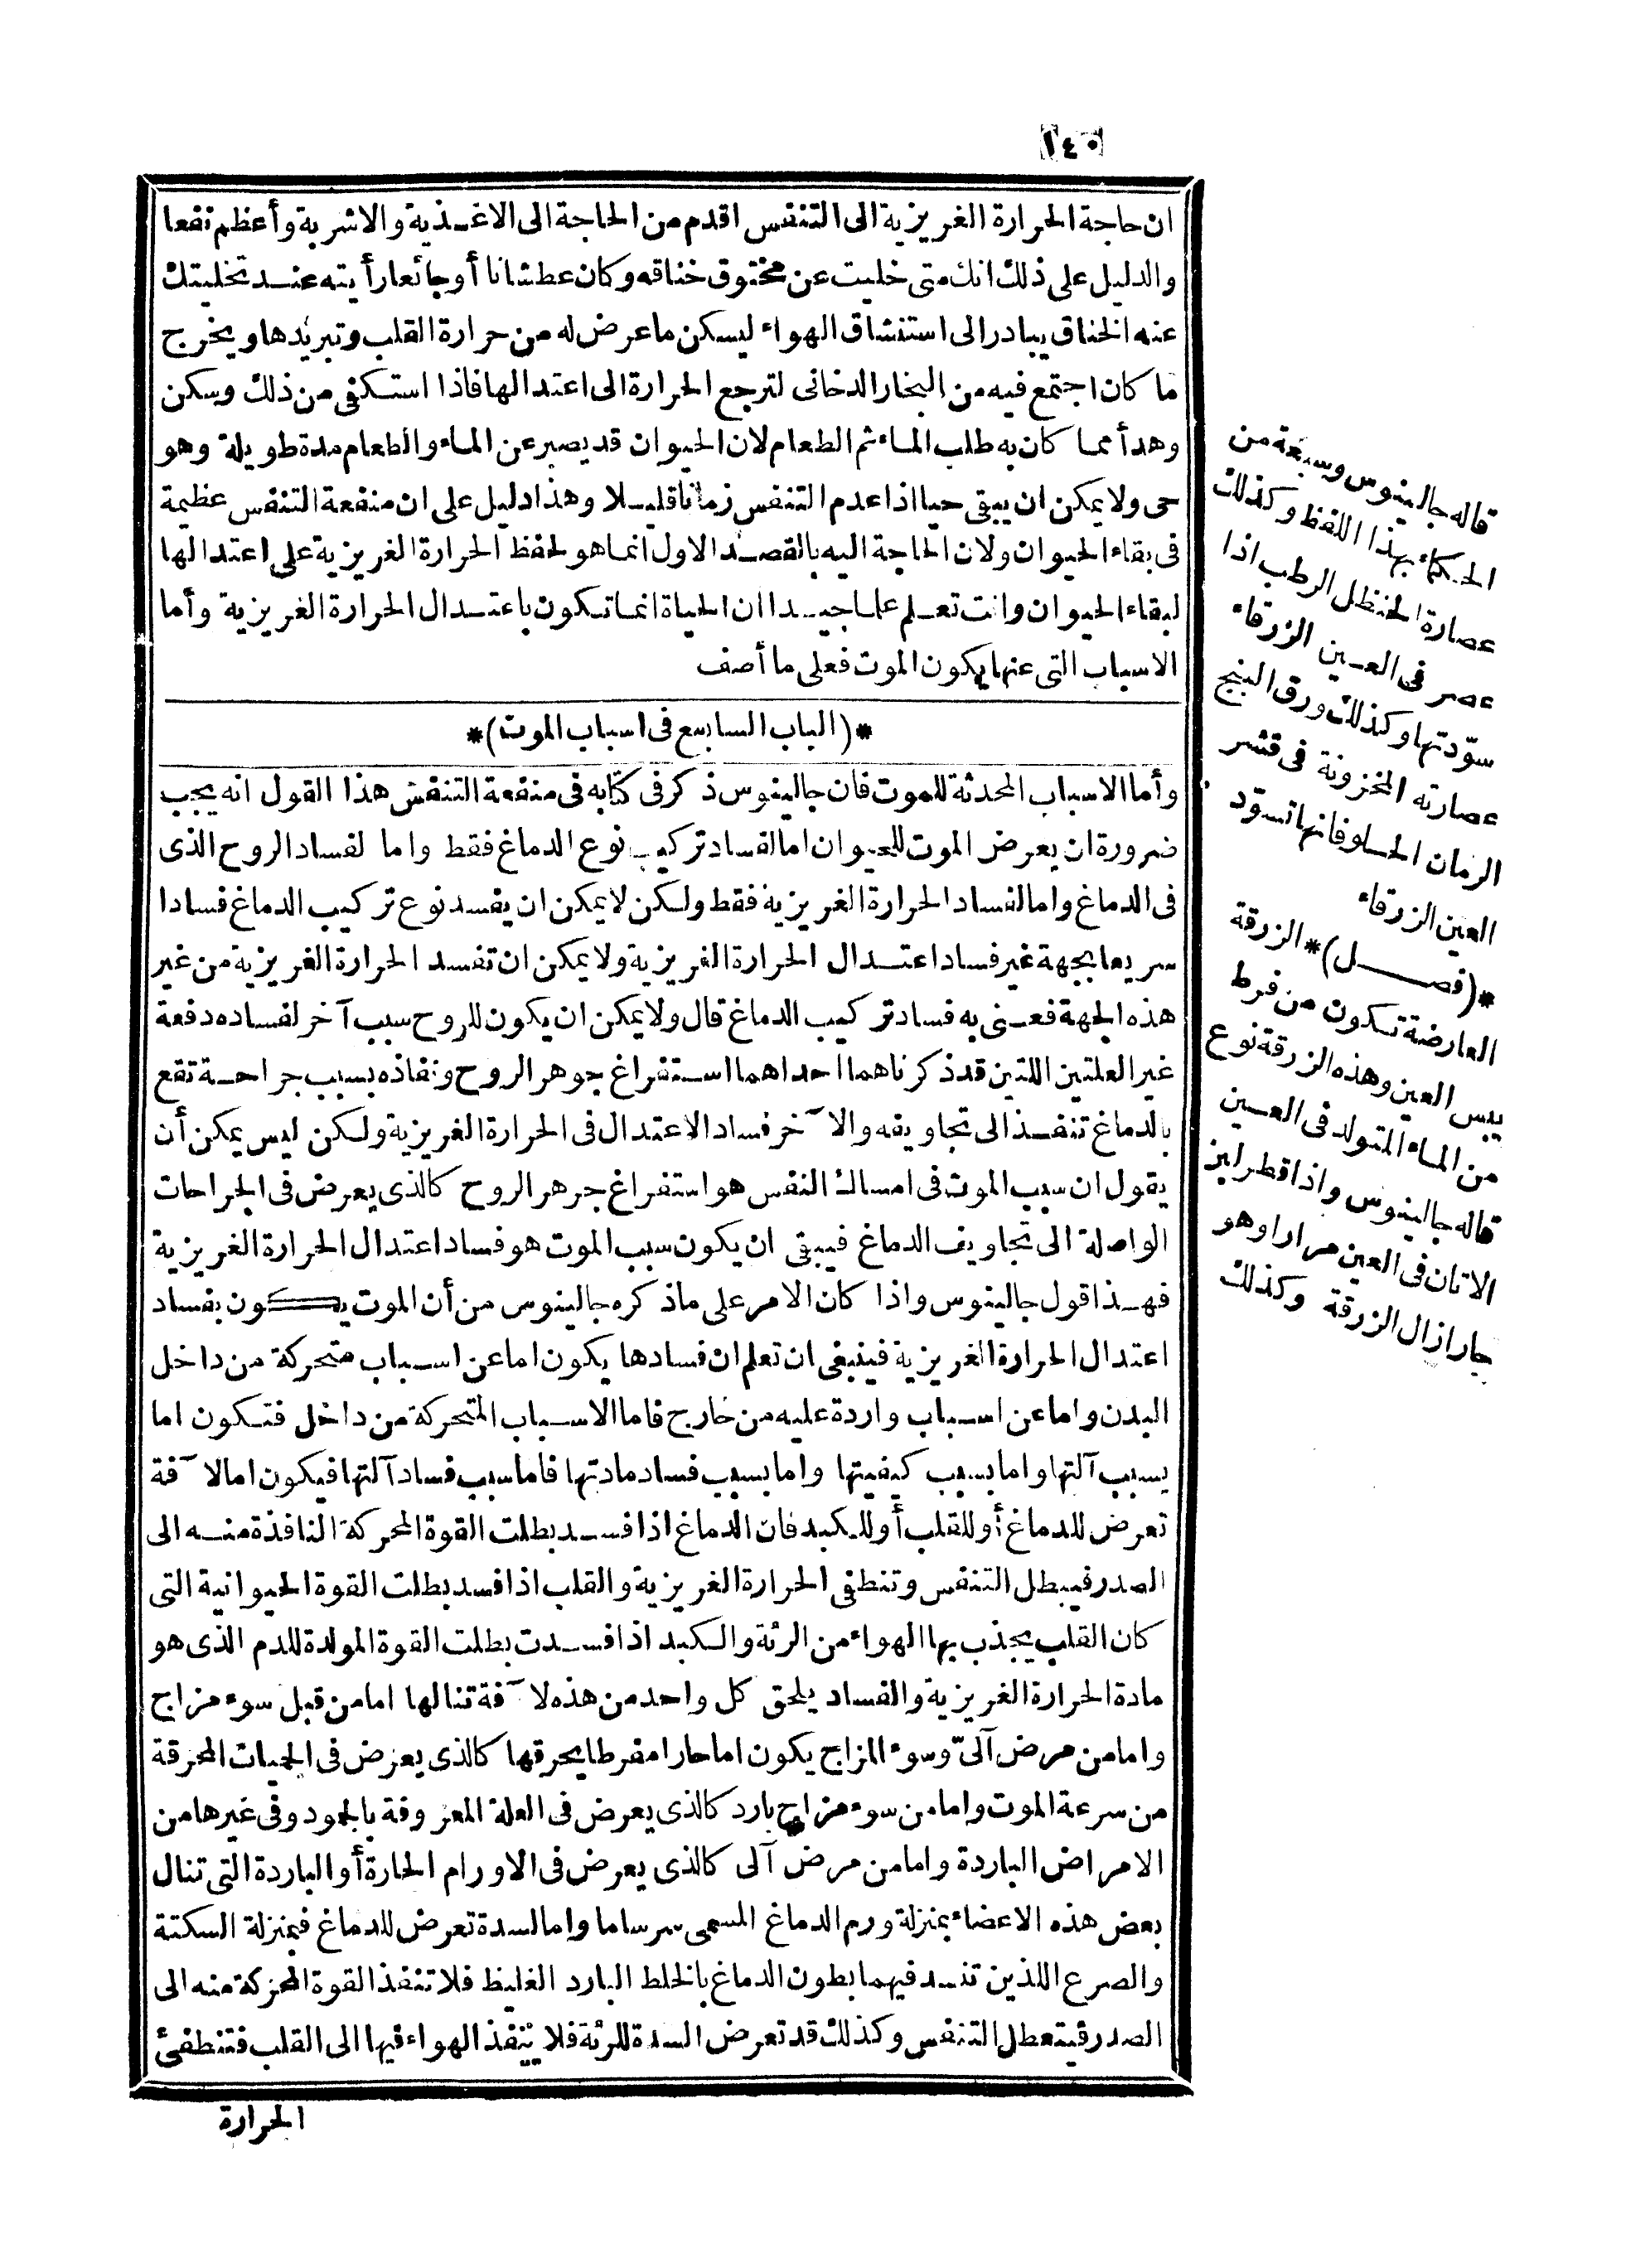 ١٤٠
ان حاجة الحرارة الغريزية الى التنفس اقدم من الحاجة الى الاغذية والاشربة وأعظم نفعا
والدليل على ذلك انك متى خليت عن مخنوق خناقه وكان عطشانا أو جائعا رأيته عند تخليتك
عنه الخناق يبادر الى استنشاق الهواء ليسكن ما عرض له من حرارة القلب وتبريدها ويخرج
ما كان اجتمع فيه من البخار الدخانى لترجع الحرارة الى اعتدالها فاذا استكفى من ذلك وسكن
وهدأ مما كان به طلب الماء ثم الطعام لان الحيوان قد يصبر عن الماء والطعام مدة طويلة وهو
حى ولا يمكن ان يبقى حيا اذا عدم التنفس زمانا قليلا وهذا دليل على ان منفعة التنفس عظيمة
فى بقاء الحيوان ولان الحاجة اليه بالقصد الاول انما هو لحفظ الحرارة الغريزية على اعتدالها
لبقاء الحيوان وانت تعلم علما جيدا ان الحياة انما تكون باعتدال الحرارة الغريزية وأما
الاسباب التى عنها يكون الموت فعلى ما أصف
*(الباب السابع فى اسباب الموت)*
وأما الاسباب المحدثة للموت فان جالينوس ذكر فى كتابه فى منفعة التنفس هذا القول انه يجب
ضرورة ان يعرض الموت للحيوان اما لفساد تركيب نوع الدماغ فقط واما لفساد الروح الذى
فى الدماغ واما لفساد الحرارة الغريزية فقط ولكن لا يمكن ان يفسد نوع تركيب الدماغ فسادا
سريعا بجهة غير فساد اعتدال الحرارة الغريزية ولا يمكن ان تفسد الحرارة الغريزية من غير
هذه الجهة فعنى به فساد تركيب الدماغ قال ولا يمكن ان يكون للروح سبب آخر لفساده دفعة
غير العلتين اللتين قد ذكرناهما احداهما استفراغ جوهر الروح ونفاذه بسبب جراحة تقع
بالدماغ تنفذ الى تجاويفه والآخر فساد الاعتدال فى الحرارة الغريزية ولكن ليس يمكن أن
يقول ان سبب الموت فى امساك النفس هو استفراغ جوهر الروح كالذى يعرض فى الجراحات
الواصلة الى تجاويف الدماغ فيبقى ان يكون سبب الموت هو فساد اعتدال الحرارة الغريزية
فهذا قول جالينوس واذا كان الامر على ما ذكره جالينوس من أن الموت يكون بفساد
اعتدال الحرارة الغريزية فينبغى ان تعلم ان فسادها يكون اما عن اسباب متحركة من داخل
البدن واما عن اسباب واردة عليه من خارج فاما الاسباب المتحركة من داخل فتكون اما
بسبب آلتها واما بسبب كيفيتها واما بسبب فساد مادتها فاما سبب فساد آلتها فيكون اما لآفة
تعرض للدماغ أو للقلب أو للكبد فان الدماغ اذا فسد بطلت القوة المحركة النافذة منه الى
الصدر فيبطل التنفس وتنطفى الحرارة الغريزية والقلب اذا فسد بطلت القوة الحيوانية التى
كان القلب يجذب بها الهواء من الرئة والكبد اذا فسدت بطلت القوة المولدة للدم الذى هو
مادة الحرارة الغريزية والفساد يلحق كل واحد من هذه لآفة تنالها اما من قبل سوء مزاج
واما من مرض آلىّ وسوء المزاج يكون اما حارا مفرطا يحرقها كالذى يعرض فى الحميات المحرقة
من سرعة الموت واما من سوء مزاج بارد كالذى يعرض فى العلة المعروفة بالجمود وفى غيرها من
الامراض الباردة واما من مرض آلى كالذى يعرض فى الاورام الحارة أو الباردة التى تنال
بعض هذه الاعضاء بمنزلة ورم الدماغ المسمى سرساما واما لسدة تعرض للدماغ فبمنزلة السكتة
والصرع اللذين تنسد فيهما بطون الدماغ بالخلط البارد الغليظ فلا تنفذ القوة المحركة منه الى
الصدر فيتعطل التنفس وكذلك قد تعرض السدة للرئة فلا ينفذ الهواء فيها الى القلب فتنطفئ
الحرارة
قاله جالينوس وسبعة من
الحكماء بهذا اللفظ وكذلك
عصارة الحنظل الرطب اذا
عصر فى العين الزرقاء
سوّدتها وكذلك ورق البنج
عصارته المخزونة فى قشر
الرمان الحلو فانها تسوّد
العين الزرقاء
*(فصل)* الزرقة
العارضة تكون من فرط
يبس العين وهذه الزرقة نوع
من الماء المتولد فى العين
قاله جالينوس واذا قطر لبن
الاتان فى العين مرارا وهو
حار ازال الزرقة وكذلك